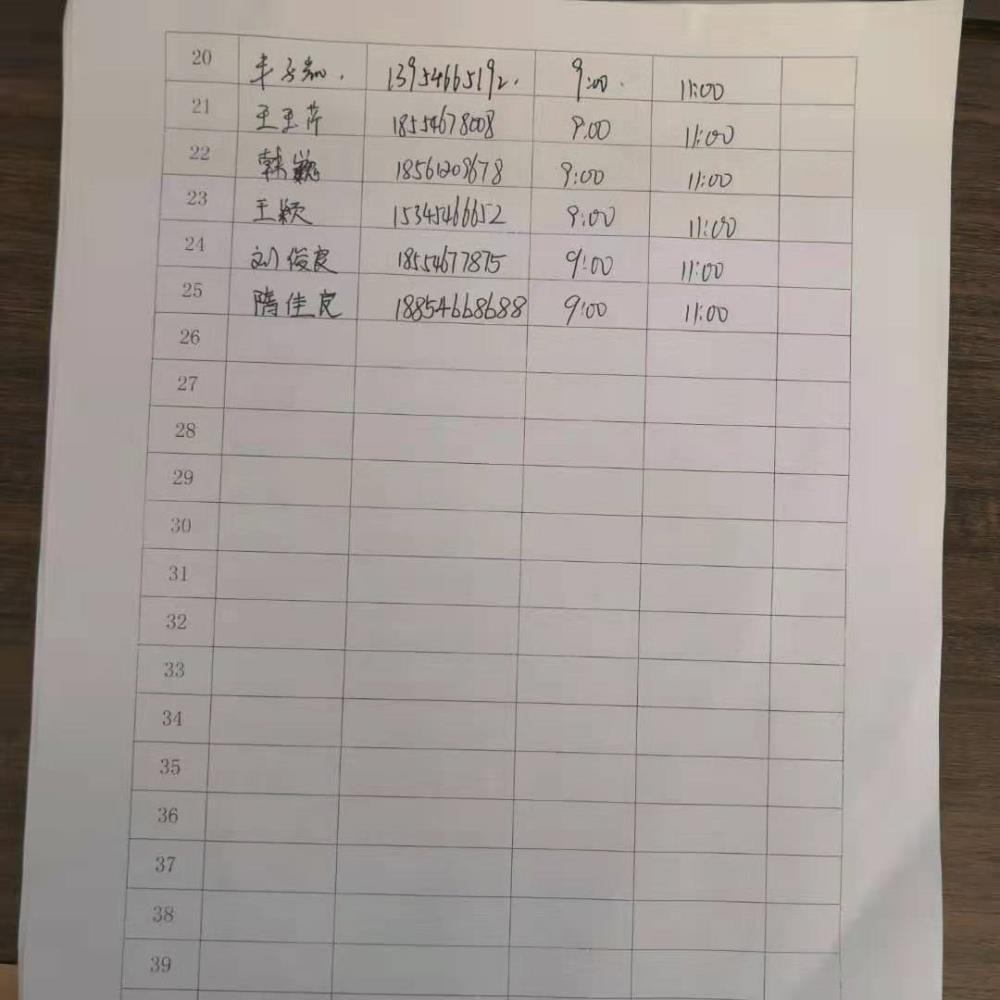 20 丰子 13954665192. 9:00. 11:00
21 王玉芹 18554678008 9.00 11:00
22 韩巍 18561209678 9:00 11:00
23 王颖 15345466652 9:00 11:00
24 刘俊良 18554677875 9:00 11:00
25 隋佳良 18854668688 9:00 11:00
26
27
28
29
30
31
32
33
34
35
36
37
38
39